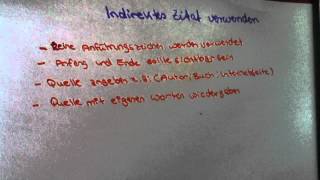 Indirektes Zitat verwenden
- Keine Anführungszeichen werden verwendet
- Anfang und Ende sollte sichtbar sein
- Quelle angeben z.B: (Autor/Buch: Internetseite)
- Quelle mit eigenen Worten wiedergeben